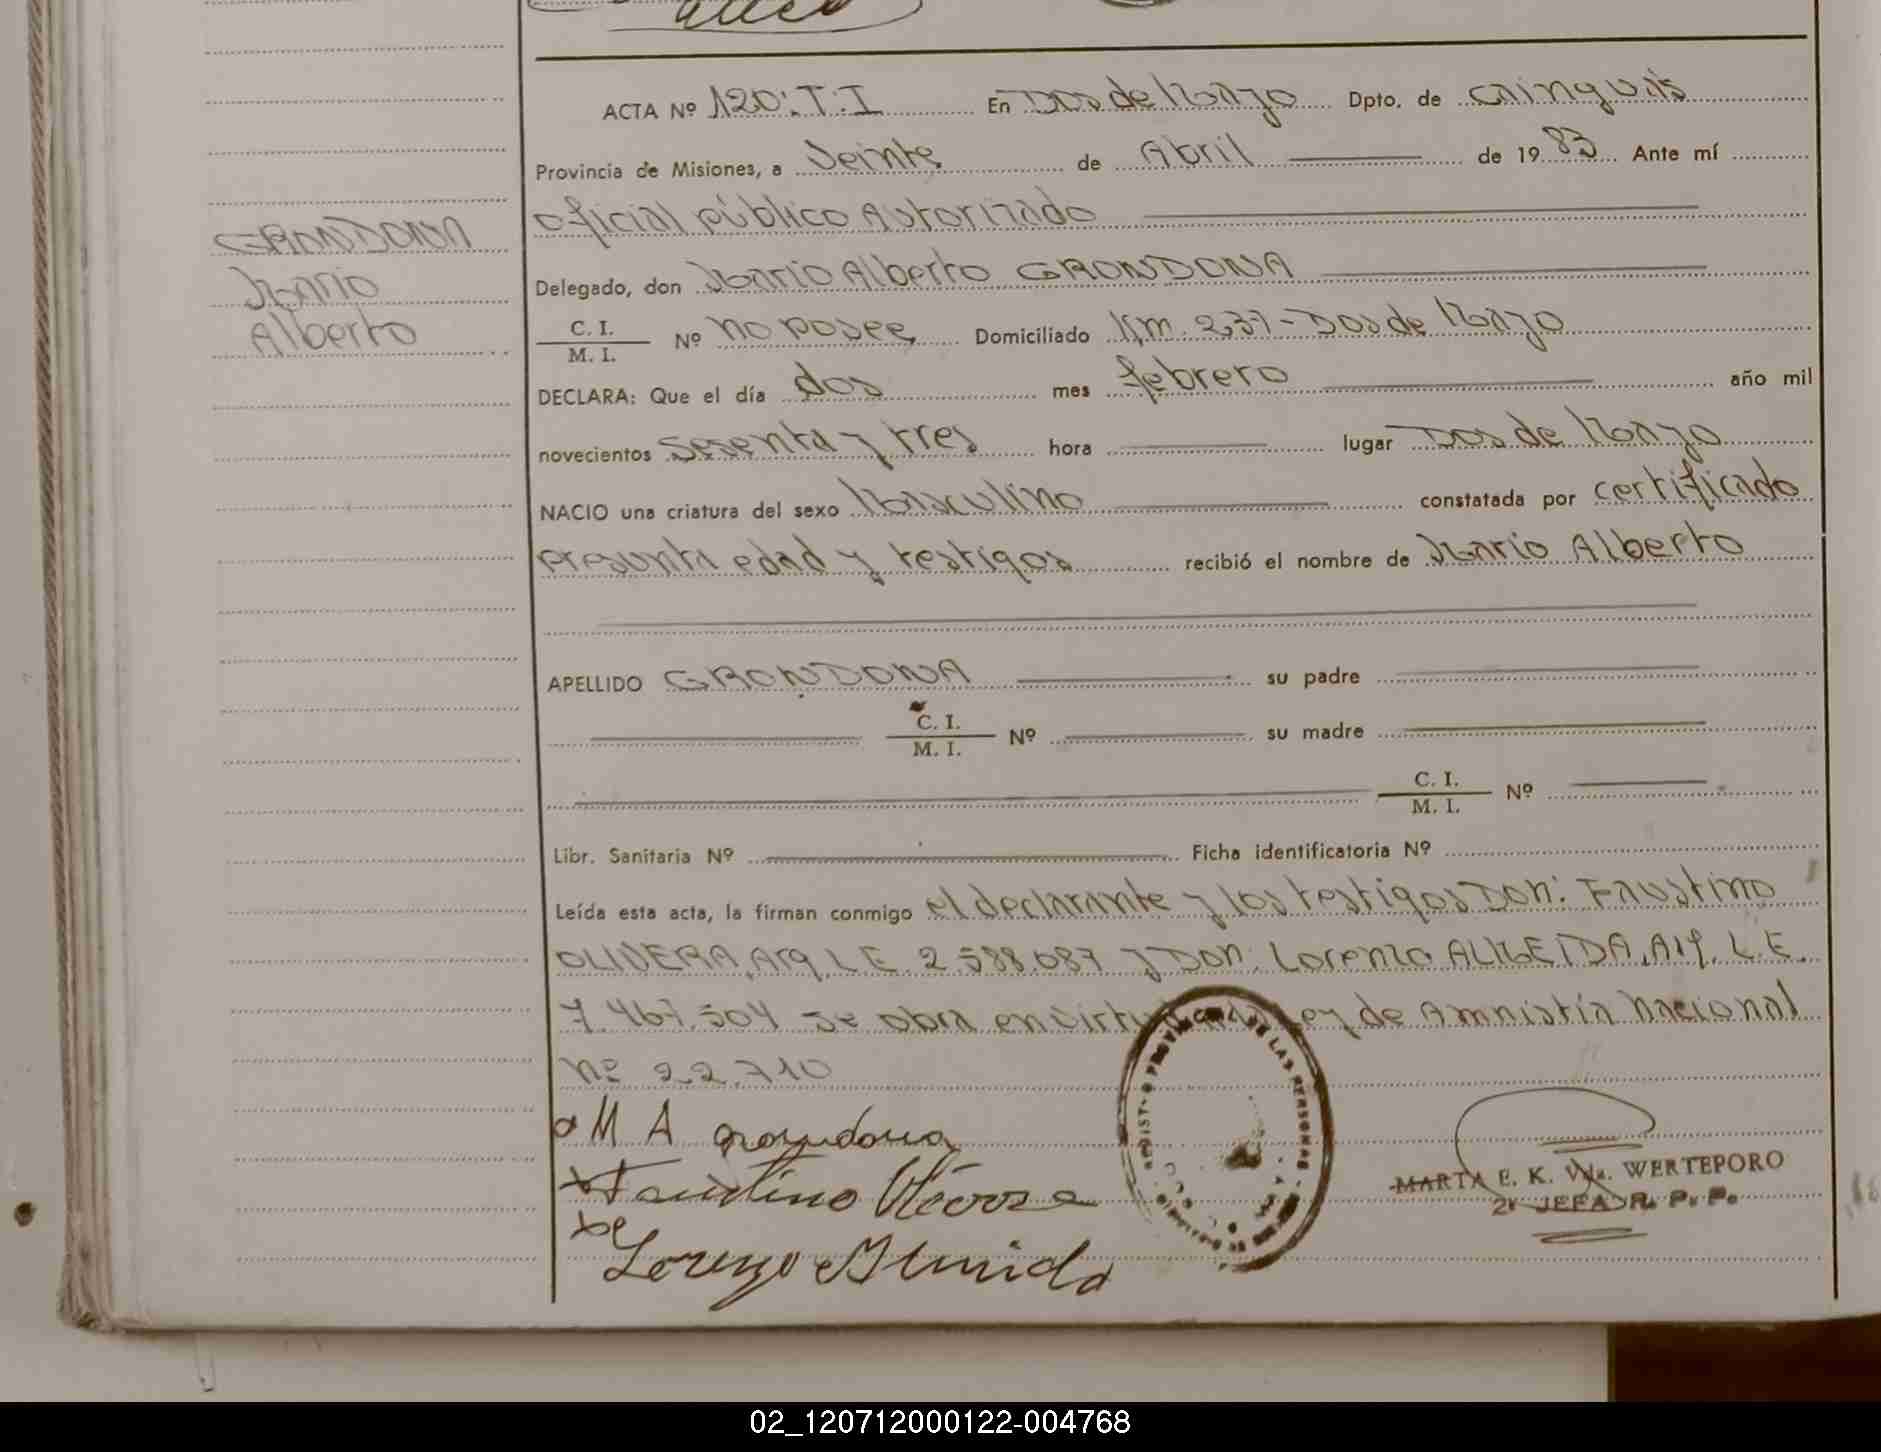 ACTA Nº 120:T:I En Dos de Mayo Dpto. de Cainguás
Provincia de Misiones, a Veinte de Abril de 1983 Ante mí
oficial público Autorizado
GRONDONA
Mario
Alberto
Delegado, don Mario Alberto GRONDONA
C. I.
M. I. Nº no posee Domiciliado Km. 237-Dos de Mayo
DECLARA: Que el día dos mes febrero año mil
novecientos sesenta y tres hora lugar Dos de Mayo
NACIO una criatura del sexo Masculino constatada por certificado
presunta edad y testigos recibió el nombre de Mario Alberto
APELLIDO GRONDONA su padre
C. I.
M. I. Nº su madre
C. I.
M. I. Nº
Libr. Sanitaria Nº Ficha identificatoria Nº
Leída esta acta, la firman conmigo el declarante y los testigos Don: Faustino
OLIVERA, Arg, L.E. 2.588.087 y Don: Lorenzo ALMEIDA, Arg. L.E.
7.467.504 se obra en virtud Ley de Amnistía Nacional
Nº 22.710
M A grondona
Faustino
Lorenzo Almeida
PROVINCIAL DE LAS PERSONAS
MARTA E. K. Vda. WERTEPORO
2ª JEFA R. P. P.
02_120712000122-004768